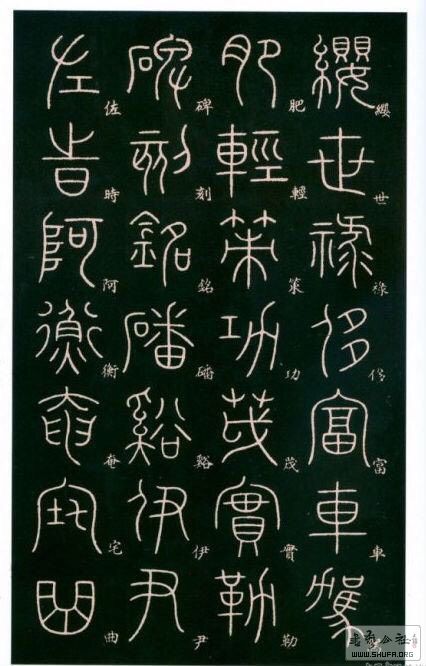 纓世祿侈富車駕
肥輕策功茂實勒
碑刻銘磻谿伊尹
佐時阿衡奄宅曲
書法公社
WWW.SHUFA.ORG